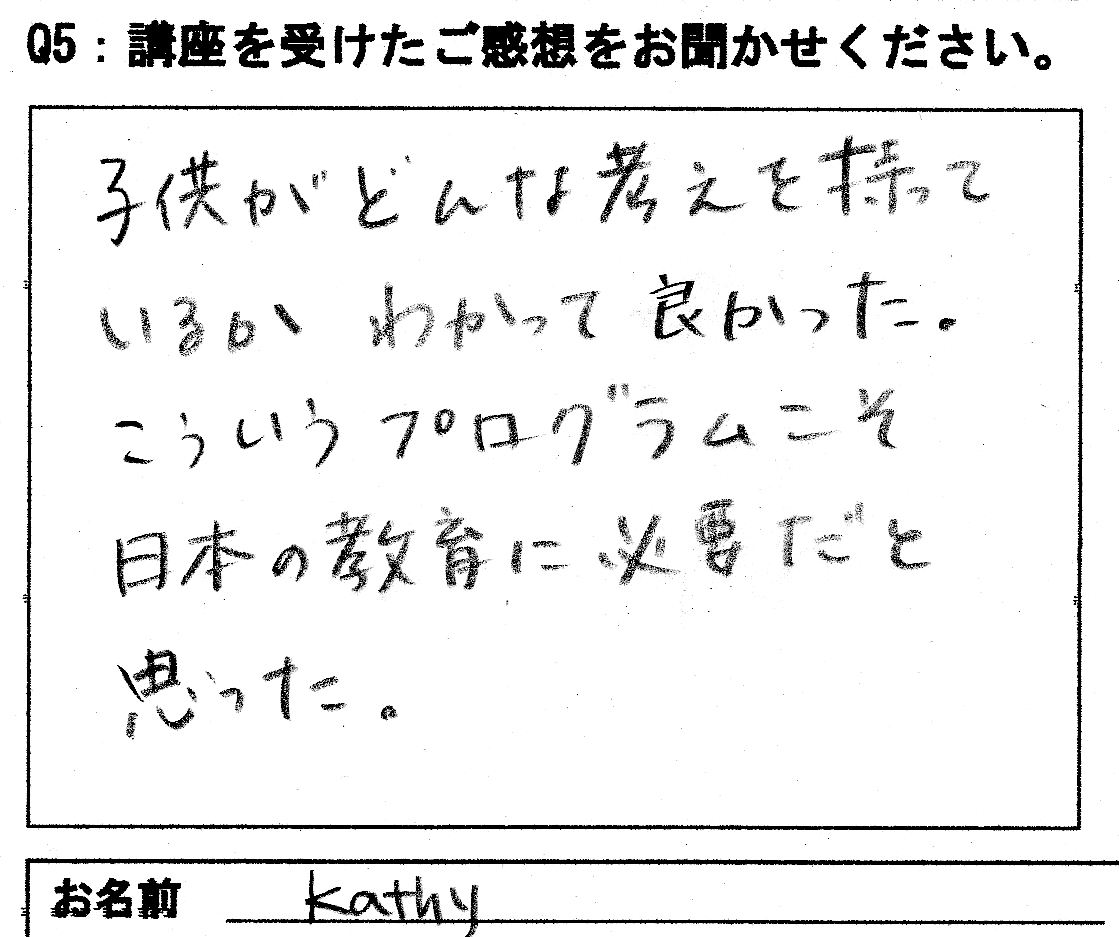 Q5：講座を受けたご感想をお聞かせください。
子供がどんな考えを持って
いるか わかって良かった。
こういうプログラムこそ
日本の教育に必要だと
思った。
お名前 Kathy